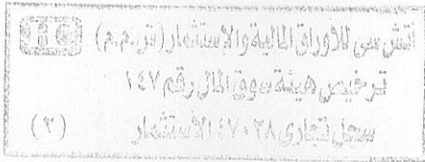 اتش سى للأوراق المالية والاستثمار (ش.م.م)
ترخيص هيئة سوق المال رقم ١٤٧
سجل تجارى ٤٧٠٢٨ الاستثمار
(٣)